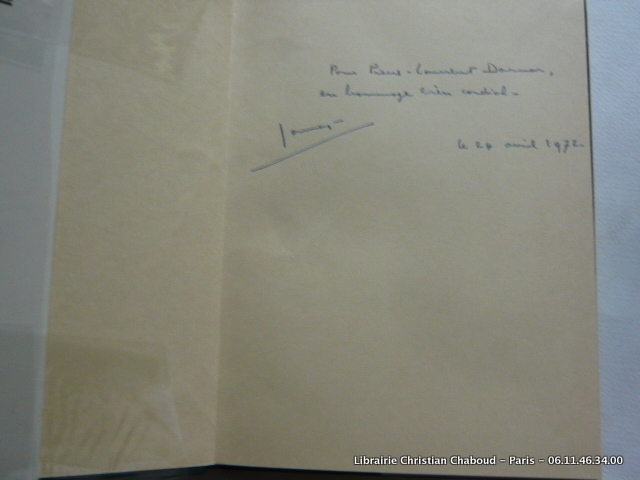 Pour Pierre-Laurent Darnar,
en hommage très cordial.
le 24 avril 1972.
Librairie Christian Chaboud - Paris - 06.11.46.34.00